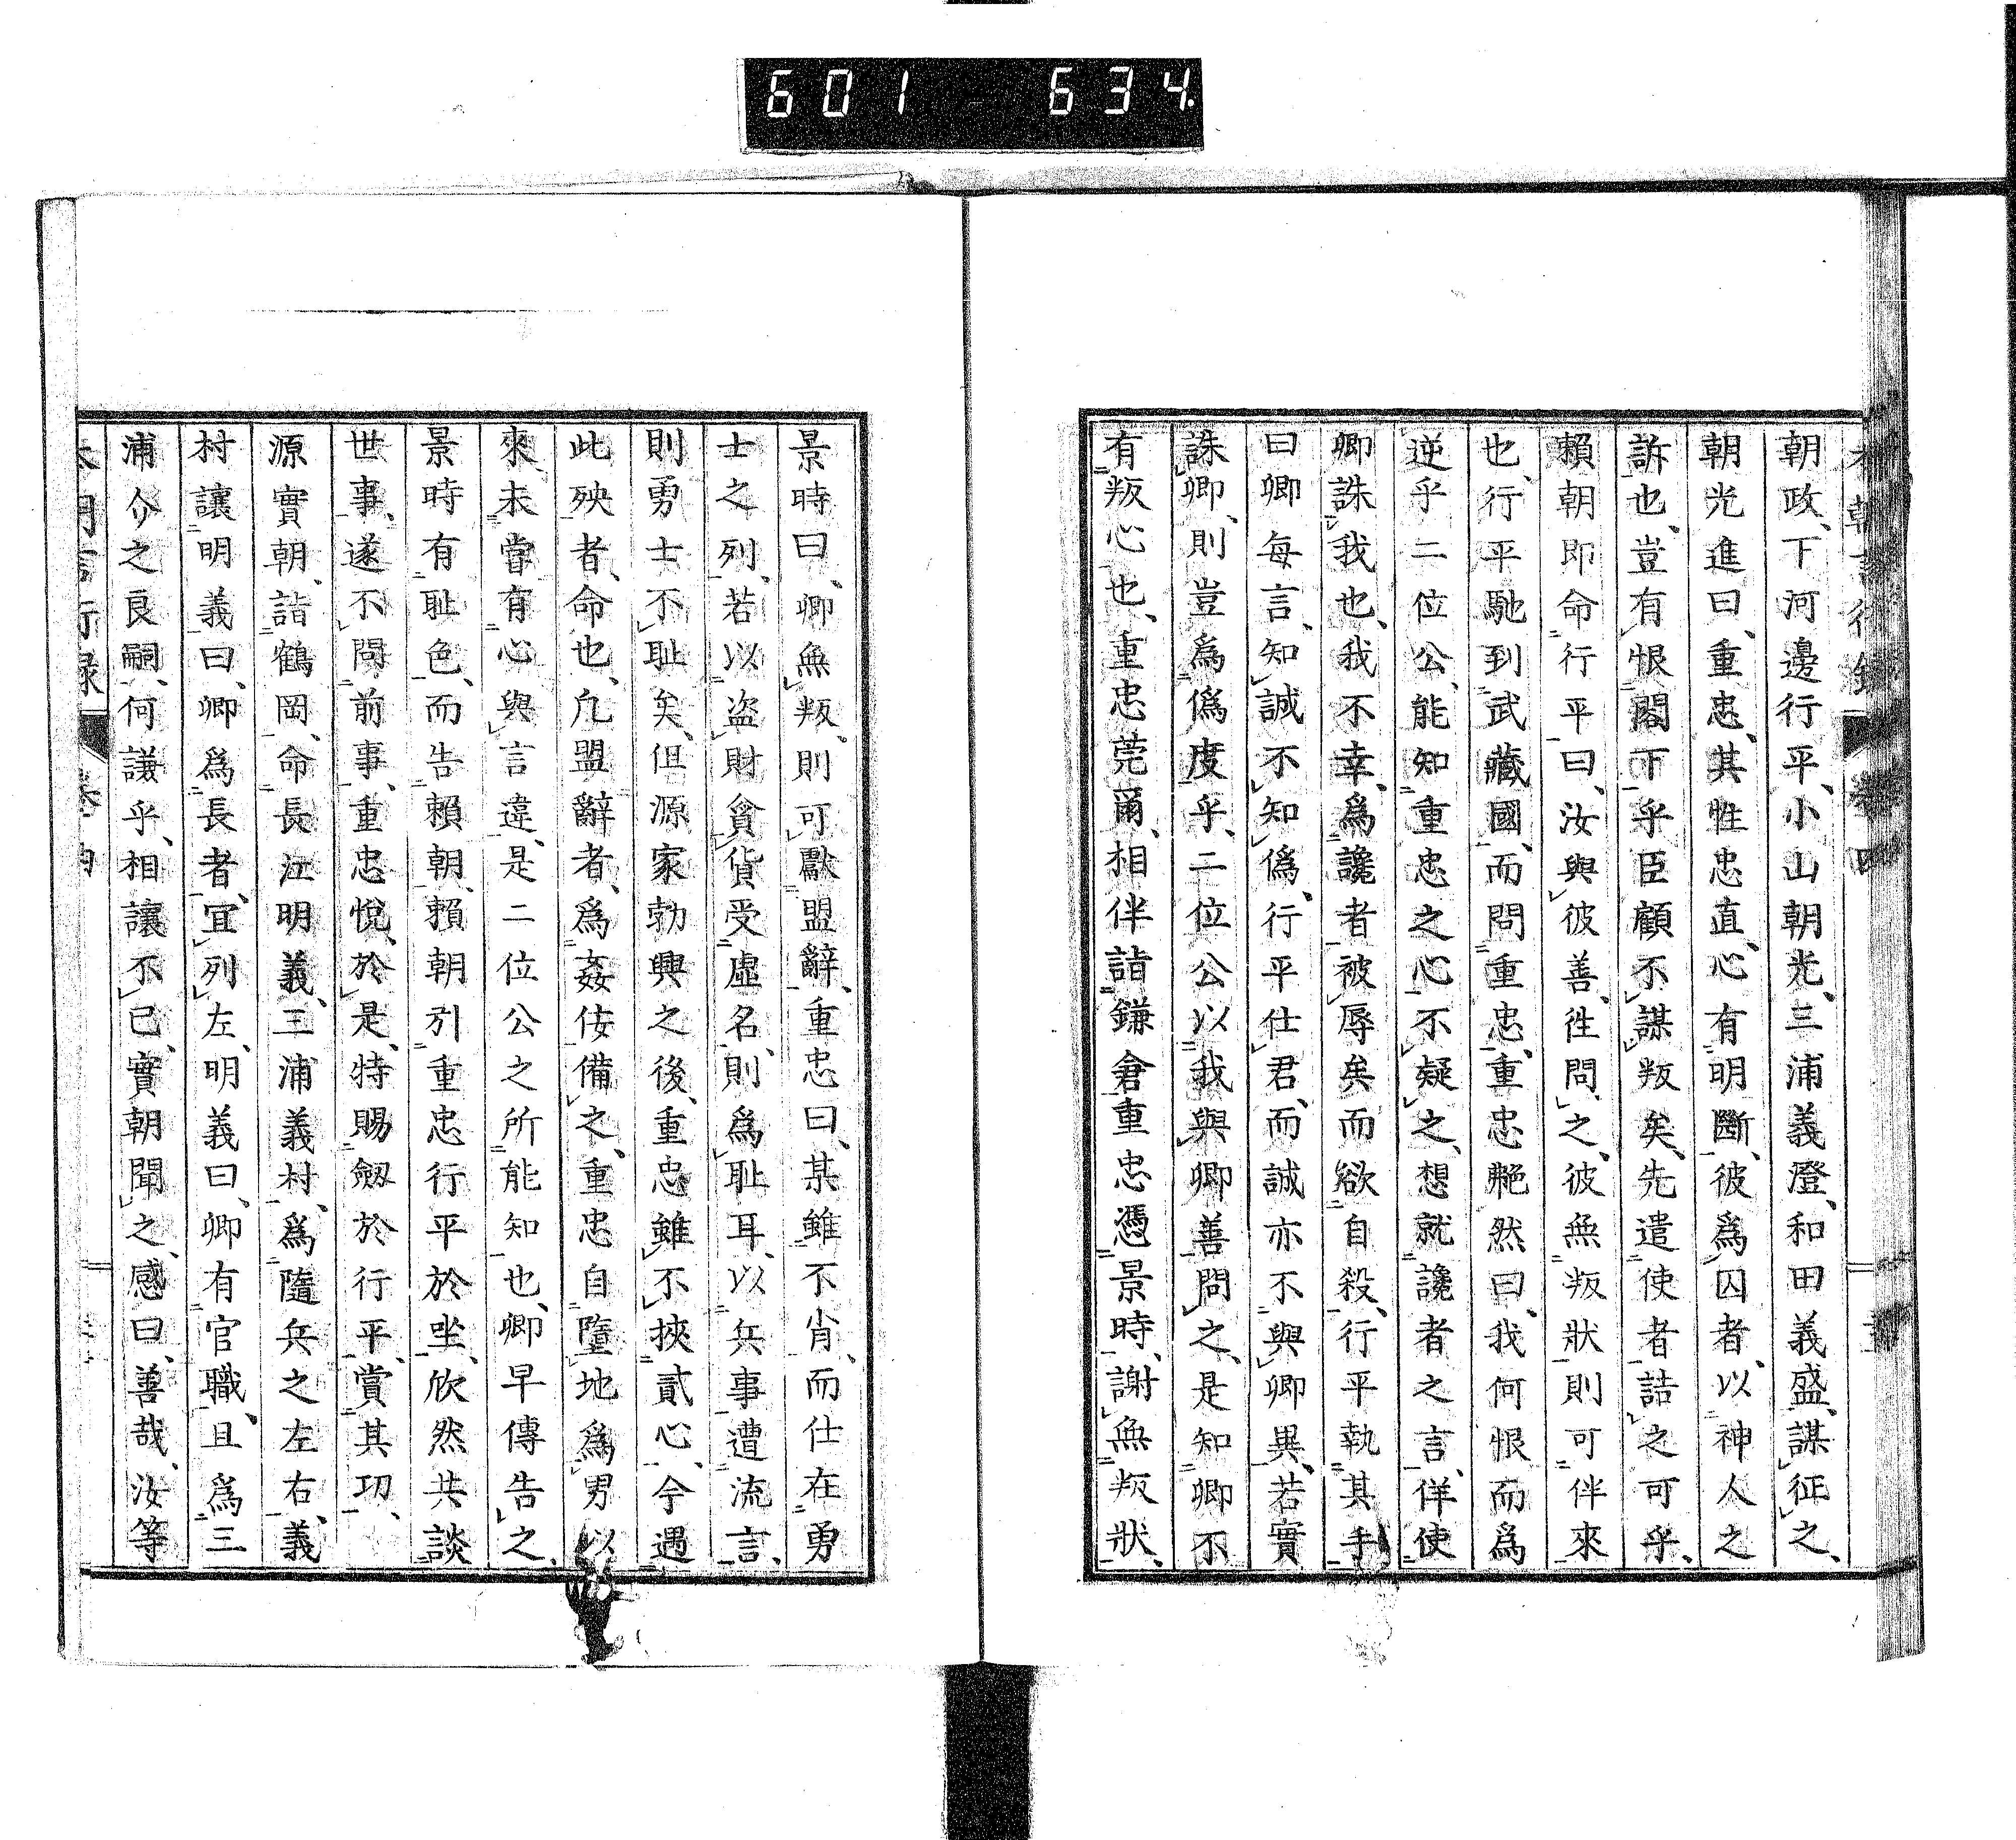 601 634
朝政、下河邊行平、小山朝光、三浦義澄、和田義盛、謀征之、
朝光進曰、重忠、其性忠直、心有明斷、彼爲囚者、以神人之
訴也、豈有恨閣下乎臣顧不謀叛矣、先遣使者詰之可乎、
賴朝即命行平曰、汝與彼善、徃問之、彼無叛狀則可伴來
也、行平馳到武藏國、而問重忠、重忠艴然曰、我何恨而爲
逆乎二位公、能知重忠之心、不疑之、想就讒者之言、佯使
卿誅我也、我不幸、爲讒者被辱矣而欲自殺、行平執其手
曰卿每言、知誠不知僞、行平仕君、而誠亦不與卿異、若實
誅卿、則豈爲僞度乎、二位公以我與卿善問之、是知卿不
有叛心也、重忠莞爾、相伴詣鎌倉重忠憑景時、謝無叛狀、
景時曰、卿無叛、則可獻盟辭、重忠曰、某雖不肖、而仕在勇
士之列、若以盗財貪貨受虛名、則爲耻耳、以兵事遭流言、
則勇士不耻矣、但源家勃興之後、重忠雖不挾貳心、今遇
此殃者、命也、凡盟辭者、爲姦侫備之、重忠自墮地爲男以
來、未嘗有心與言違、是二位公之所能知也、卿早傳告之、
景時有耻色、而告賴朝、賴朝引重忠行平於坐、欣然共談
世事、遂不問前事、重忠悅、於是、特賜劔於行平、賞其功、
源實朝、詣鶴岡、命長江明義、三浦義村、爲隨兵之左右、義
村讓明義曰、卿爲長者、宜列左、明義曰、卿有官職、且爲三
浦介之良嗣、何謙乎、相讓不已、實朝聞之、感曰、善哉、汝等